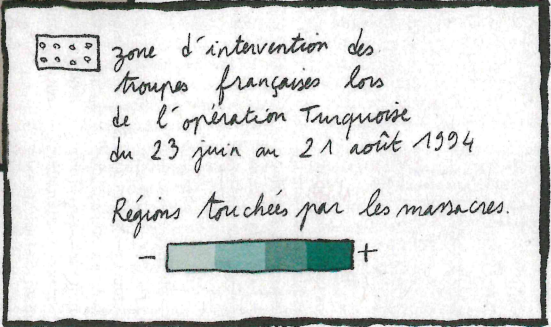 zone d'intervention des
troupes françaises lors
de l'opération Turquoise
du 23 juin au 21 août 1994
Régions touchées par les massacres.
- +